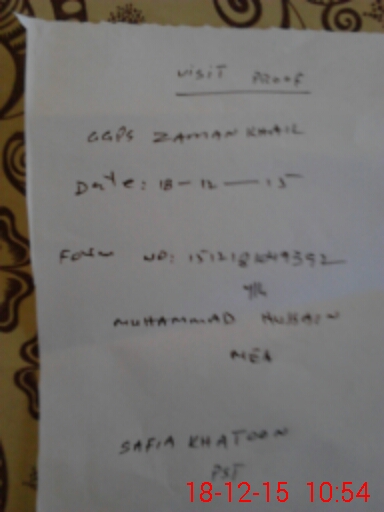 VISIT PROOF
GGPS ZAMAN KHAIL
Date: 18-12-15
Form NO:
MUHAMMAD HUSSAIN
MEA
SAFIA KHATOON
PST
18-12-15 10:54